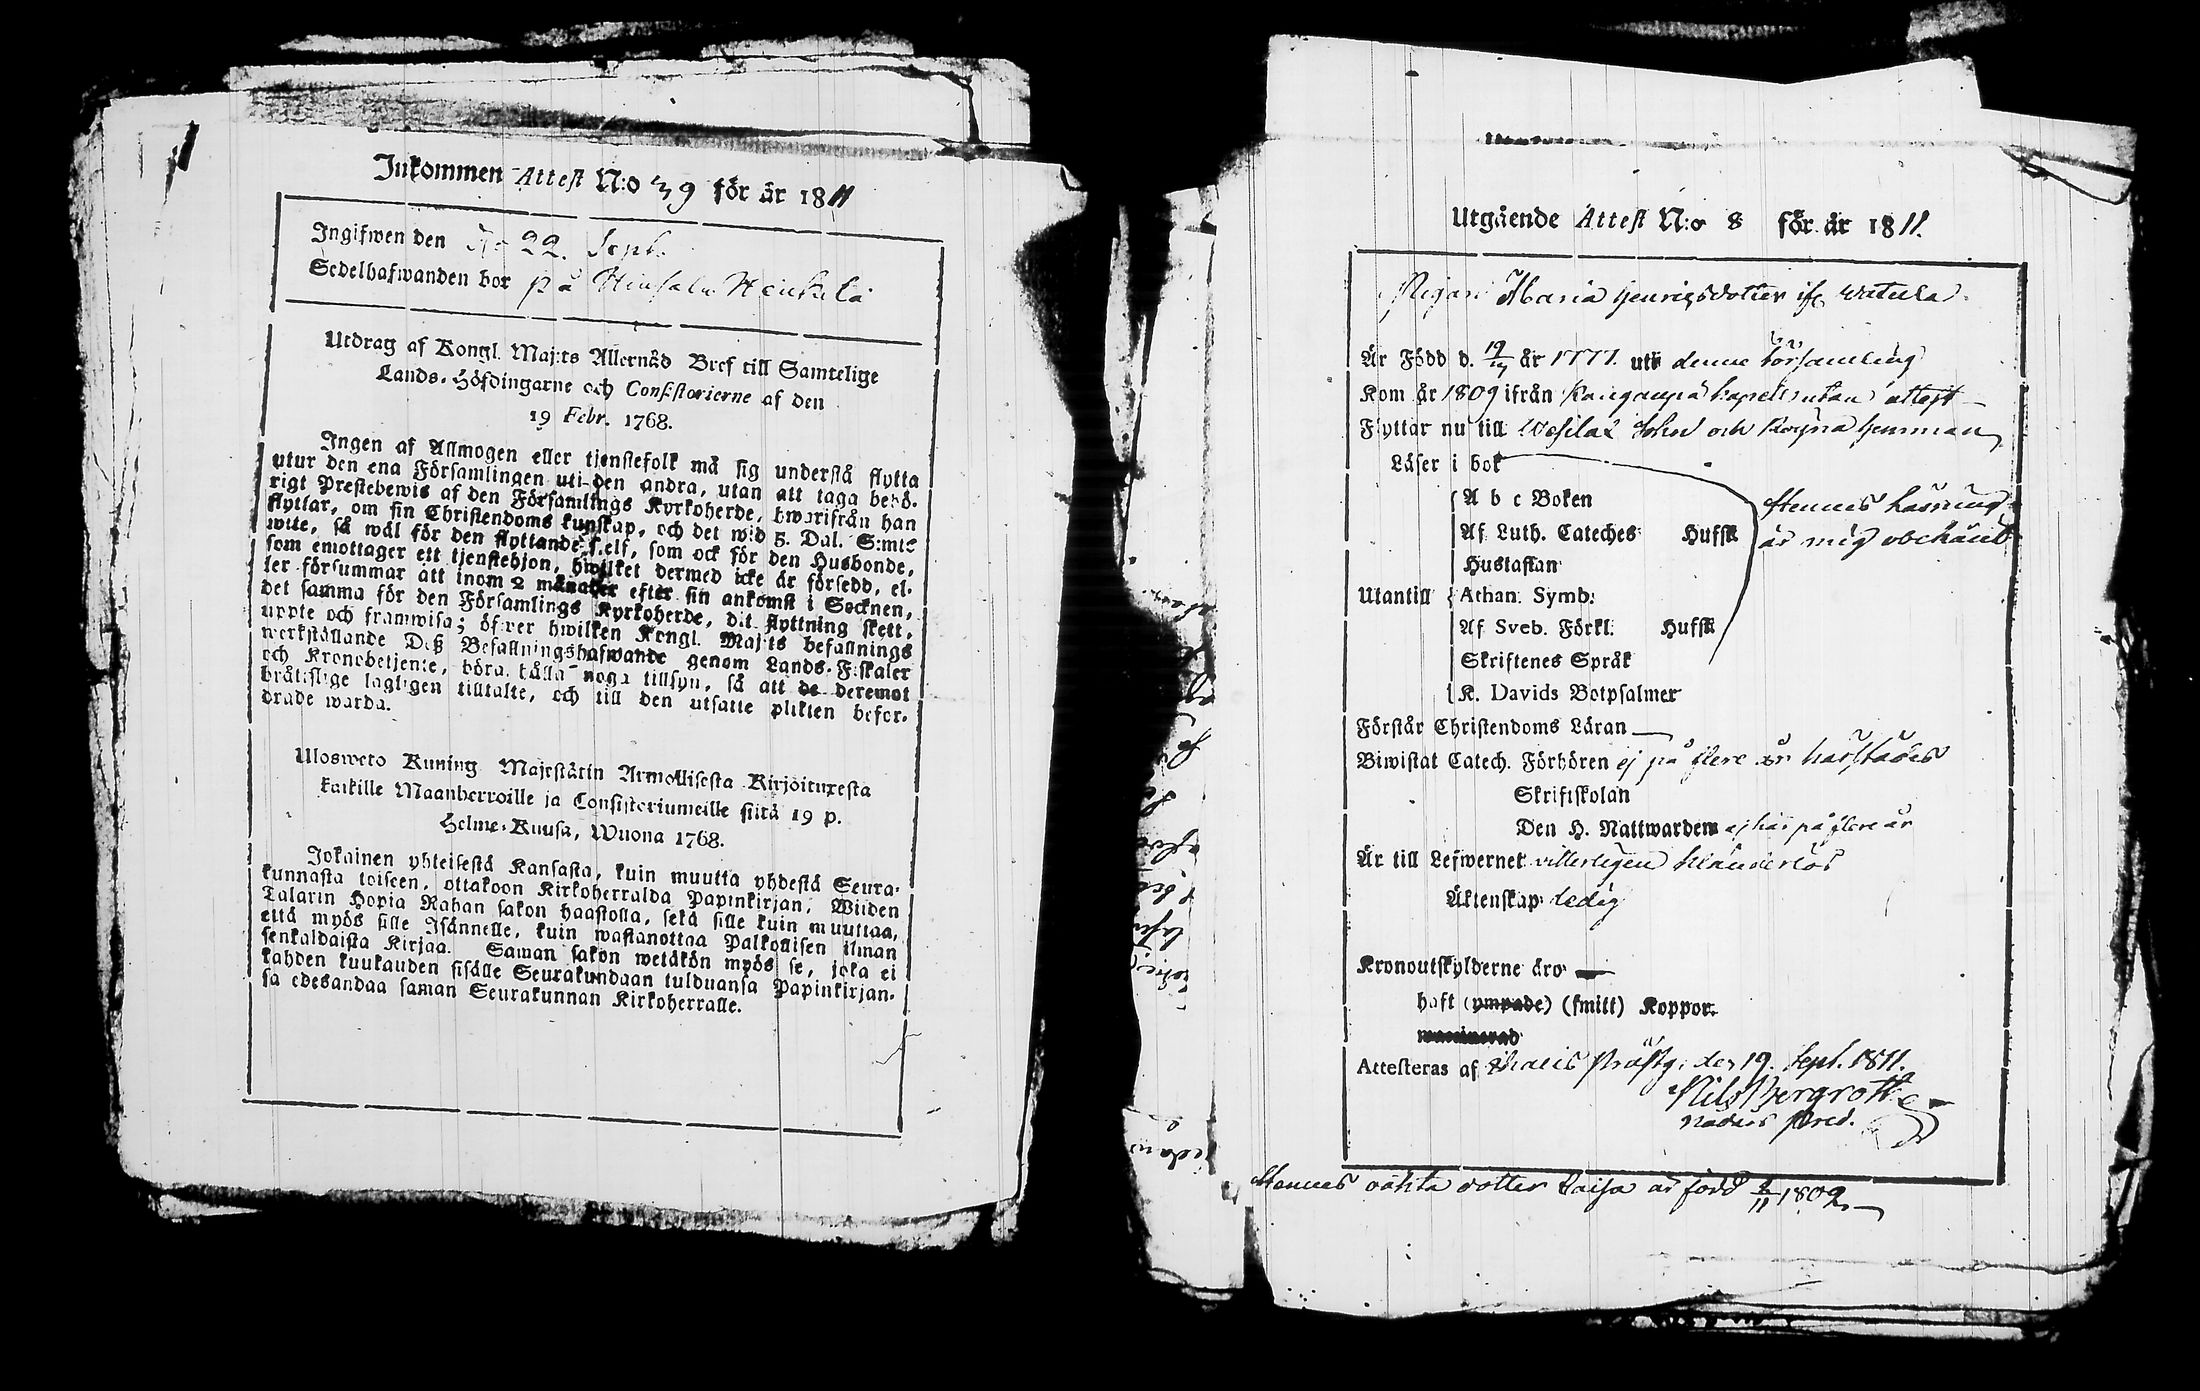 Inkommen Attest N:o 39 för år 1811
Ingifwen den 22. Sept.
Sedelhafwanden bor på
Utdrag af Kongl. Maj:ts Allernåd Bref till Samtelige
Lands-Höfdingarne och Consistorierne af den
19 Febr. 1768.
Ingen af Allmogen eller tjenstefolk må sig understå flytta
utur den ena Församlingen uti den andra, utan att taga behö-
rigt Prestebewis af den Församlings Kyrkoherde, hwarifrån han
flyttar, om sin Christendoms kunskap, och det wid 5. Dal. S:mts
wite, så wäl för den flyttande self, som ock för den Husbonde,
som emottager ett tjenstehjon, hwilket dermed icke är försedd, el-
ler försummar att inom 2 månader efter sin ankomst i Socknen,
det samma för den Församlings Kyrkoherde, dit flyttning skett,
uppte och framwisa; öfwer hwilken Kongl. Maj:ts befallnings
werkställande Deß Befallningshafwande genom Lands-Fiskaler
och Kronobetjente, böra hålla noga tillsyn, så att de deremot
bråtislige lagligen tilltalte, och till den utsatte plikten befor-
drade warda.
Ulosweto Kuning Majestätin Armollisesta Kirjoituxesta
kaikille Maanherroille ja Consistoriumeille siitä 19 p.
Helme-Kuusa, Wuona 1768.
Jokainen yhteisestä Kansasta, kuin muutta yhdestä Seura-
kunnasta toiseen, ottakoon Kirkoherralda Papinkirjan, Wiiden
Talarin Hopia Rahan sakon haastolla, sekä sille kuin muuttaa,
että myös sille Isännelle, kuin wastanottaa Palkollisen ilman
senkaldaista Kirjaa. Saman sakon wetäkön myös se, joka ei
kahden kuukauden sisälle Seurakundaan tulduansa Papinkirjan-
sa edesandaa saman Seurakunnan Kirkoherralle.
Utgående Attest N:o 8 för år 1811.
Pigan Maria Henrigsdotter ifr Watula
Är Född d. 19/7 år 1777. uti denne Församling
Kom år 1809 ifrån Kangasnpä kapell utan attest
Flyttar nu till Wesilax Sokn och
Läser i bok
A b c Boken
Hennes läsning
Af Luth. Cateches Hufsk
är mig obekant
Hustaflan
Utantill Athan. Symb.
Af Sveb. Förkl. Hufsk
Skriftenes Språk
K. Davids Botpsalmer
Förstår Christendoms Läran —
Biwistat Catech. Förhören ej på flere år härstädes
Skriftskolan
Den H. Nattwarden ej här på flere år
Är till Lefwernet witterligen klanderlös
Äktenskap ledig
Kronoutskylderne äro —
haft (ympade) (smitt) Koppor.
waccinerad
Attesteras af Prästg. den 19. Sept. 1811.
Nils Bergroth
Nådårs Pred.
Hennes oäkta dotter Caisa är född 2/11 1809